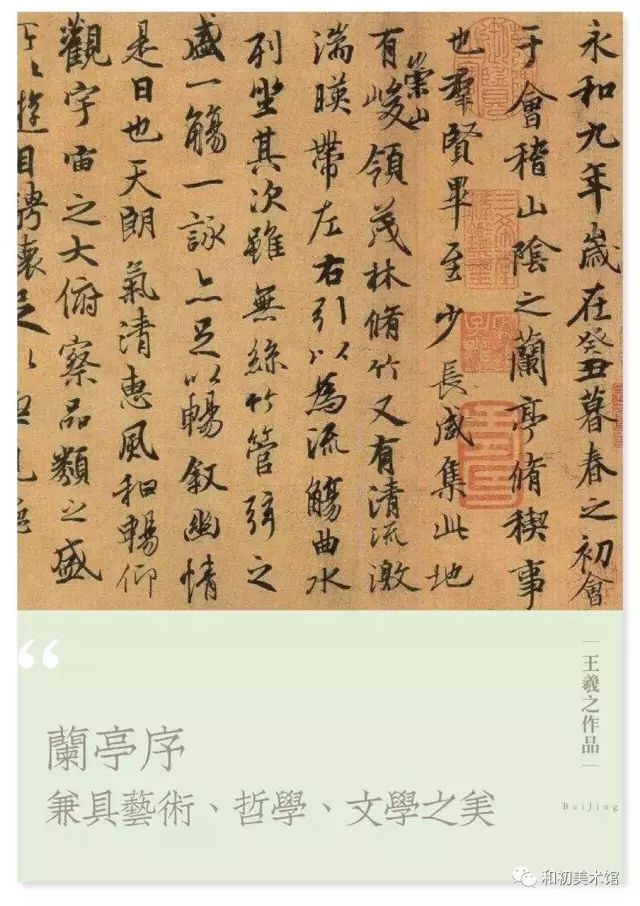 永和九年歲在癸丑暮春之初會
于會稽山陰之蘭亭脩稧事
也羣賢畢至少長咸集此地
有崇山峻領茂林脩竹又有清流激
湍暎帶左右引以為流觴曲水
列坐其次雖無絲竹管弦之
盛一觴一詠亦足以暢敘幽情
是日也天朗氣清惠風和暢仰
觀宇宙之大俯察品類之盛
遊目騁懷足以
“
王羲之作品
蘭亭序
兼具藝術、哲學、文學之美
BeiJing
和初美术馆